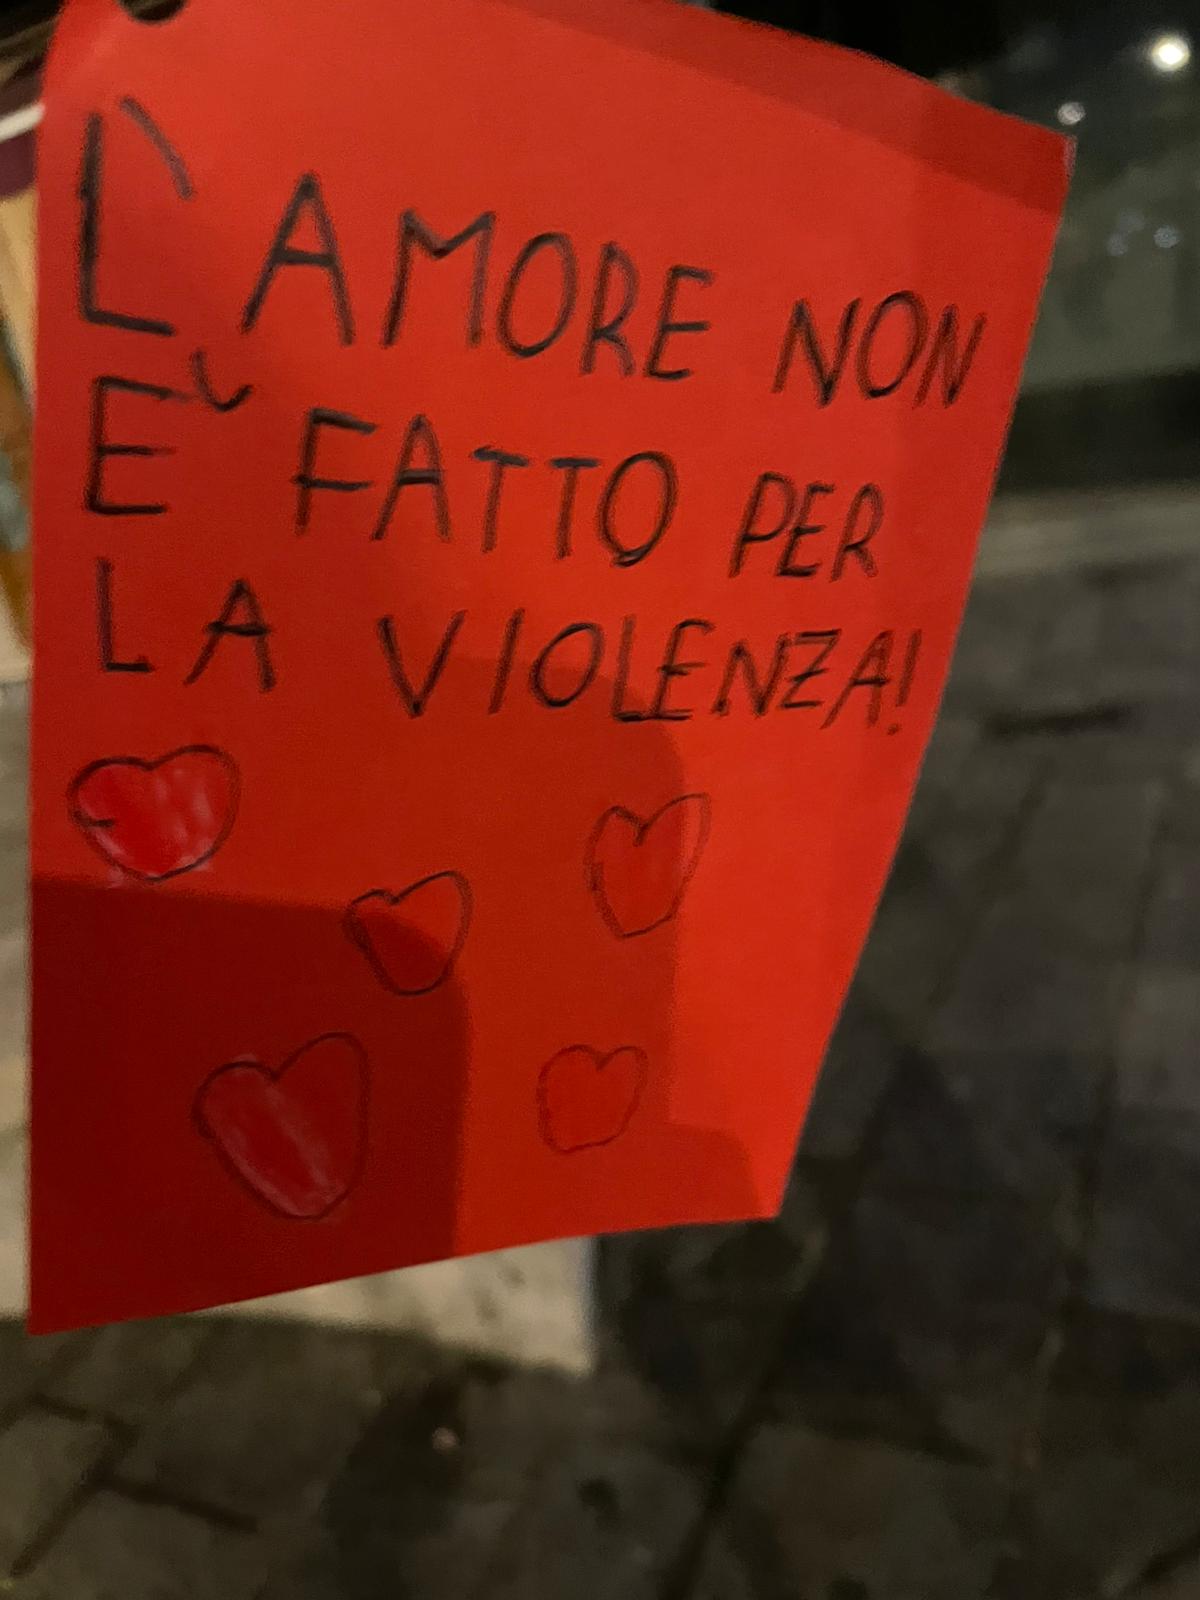 L'AMORE NON
È FATTO PER
LA VIOLENZA!